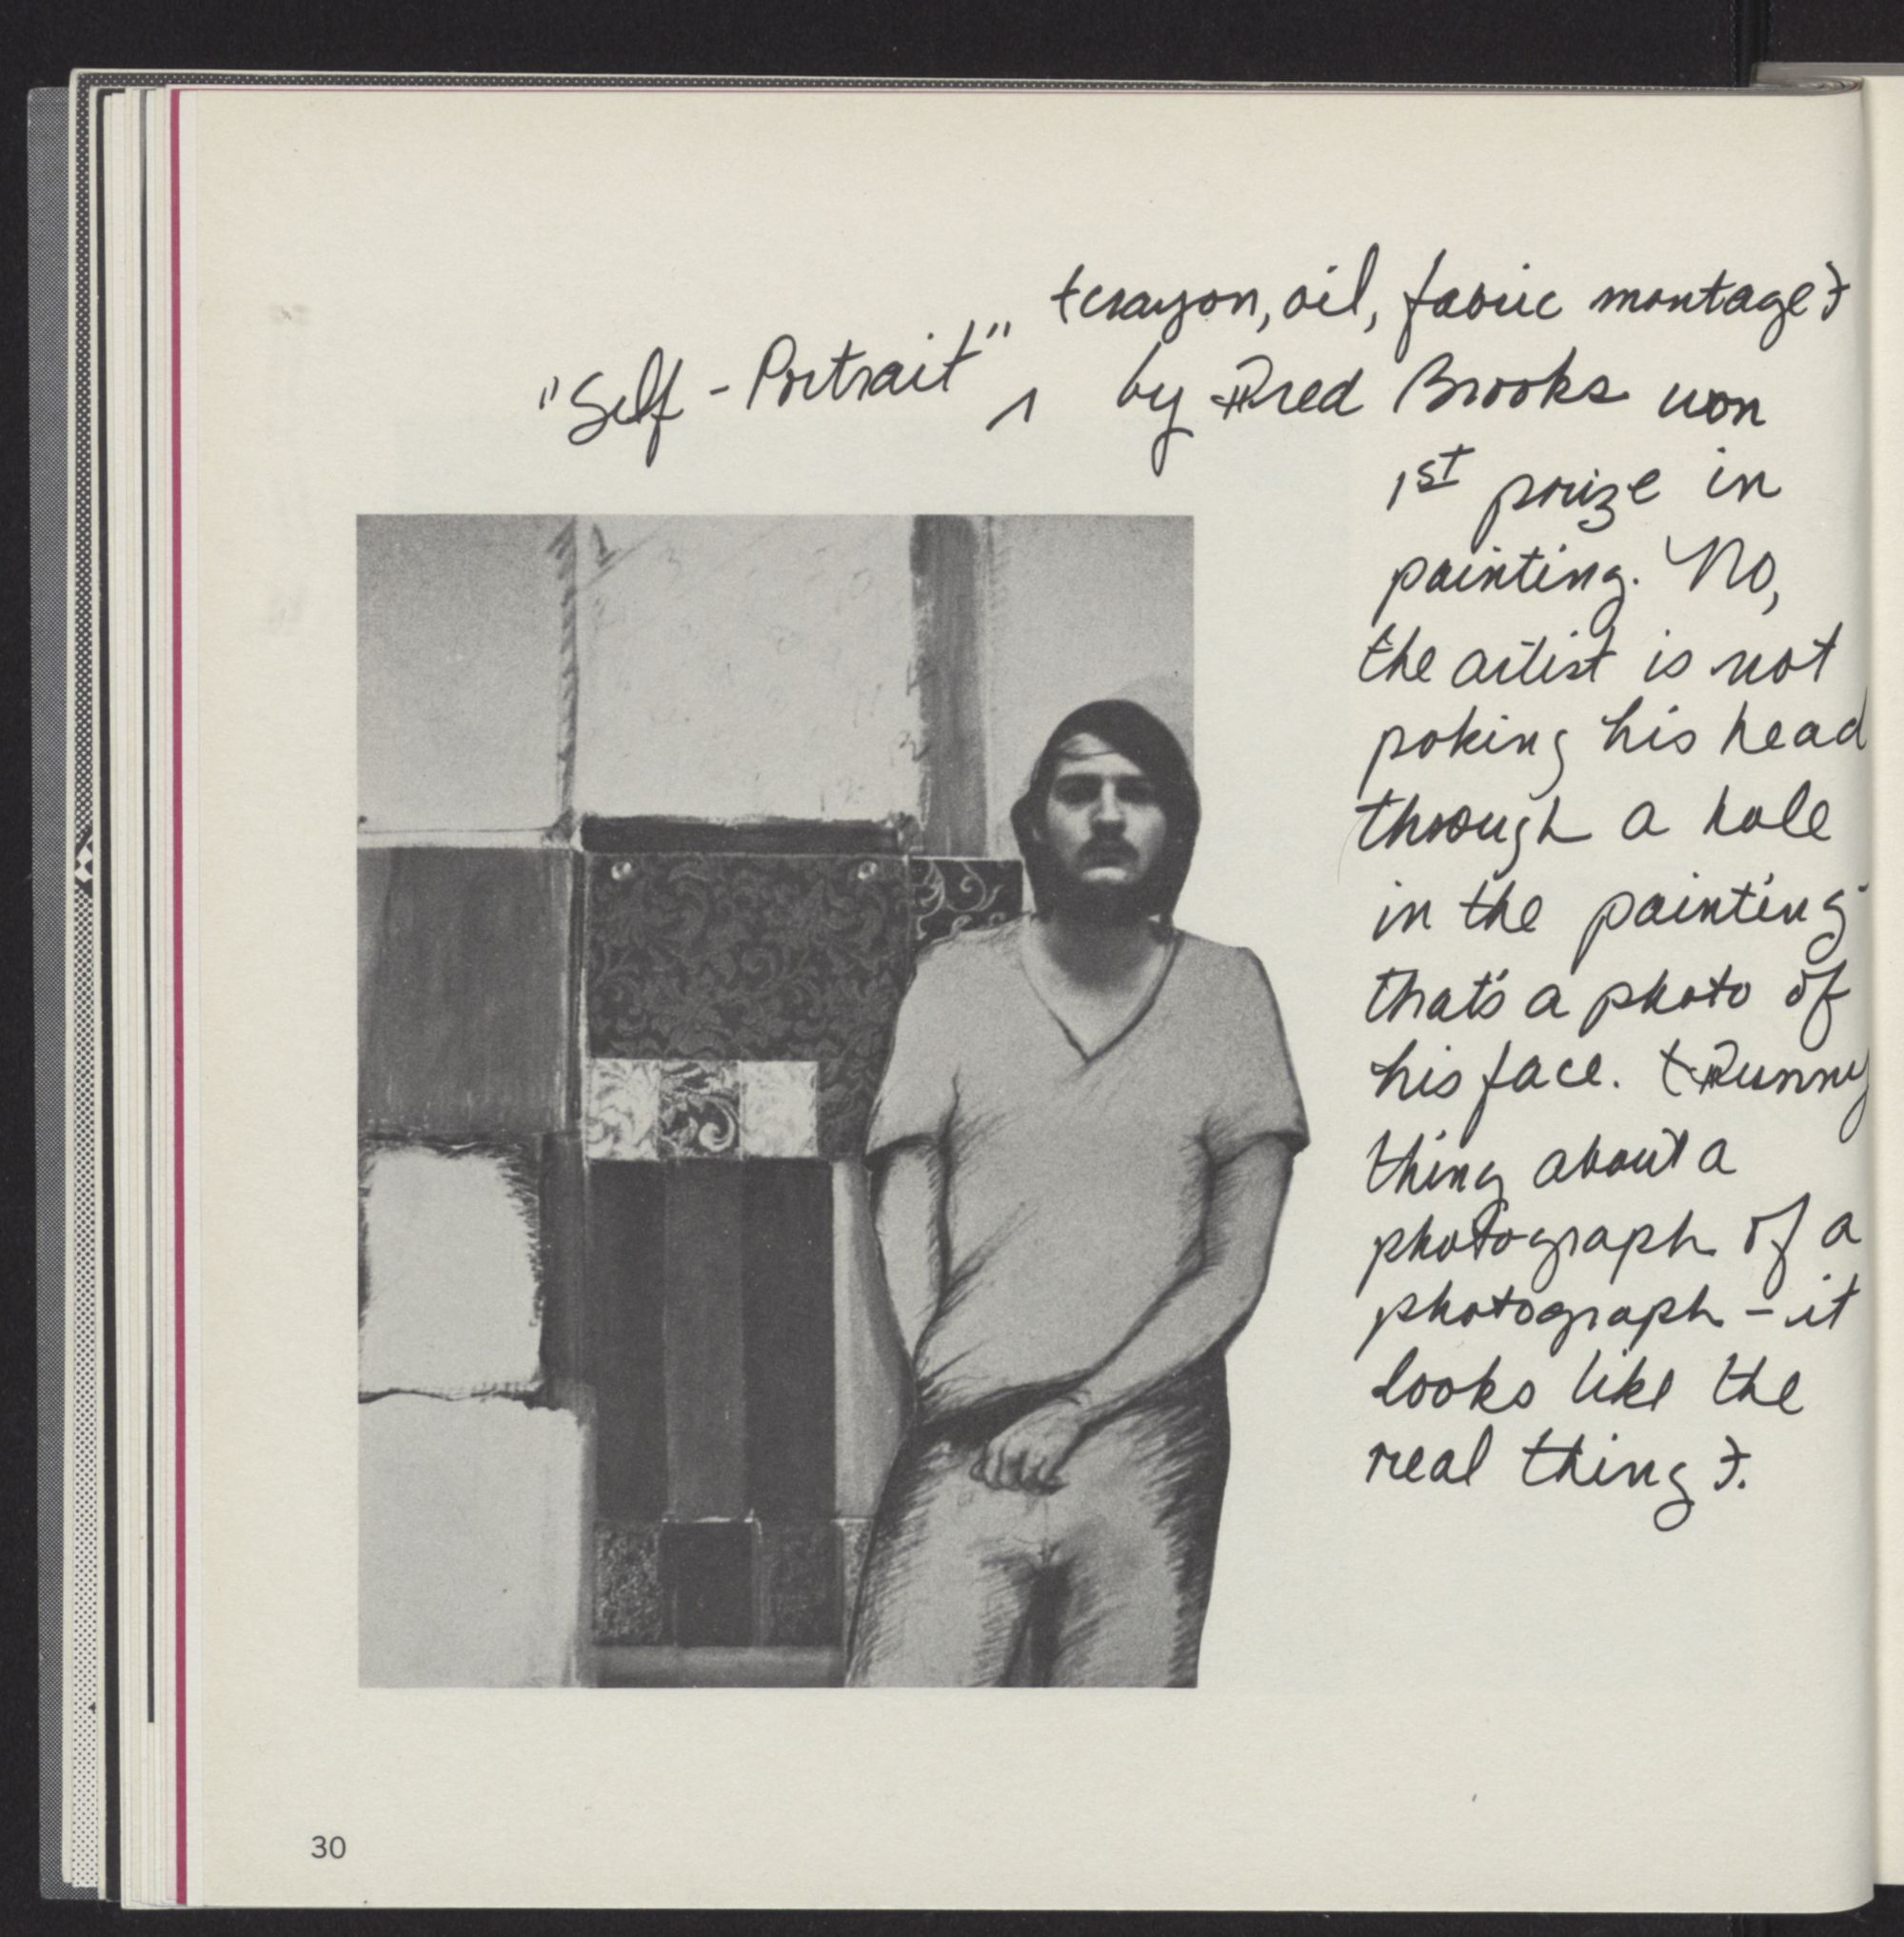 (crayon, oil, fabric montage)
"Self-Portrait" ^ by Fred Brooks won
1st prize in
painting. No,
the artist is not
poking his head
through a hole
in the painting -
that's a photo of
his face. (Funny
thing about a
photograph of a
photograph - it
looks like the
real thing).
30